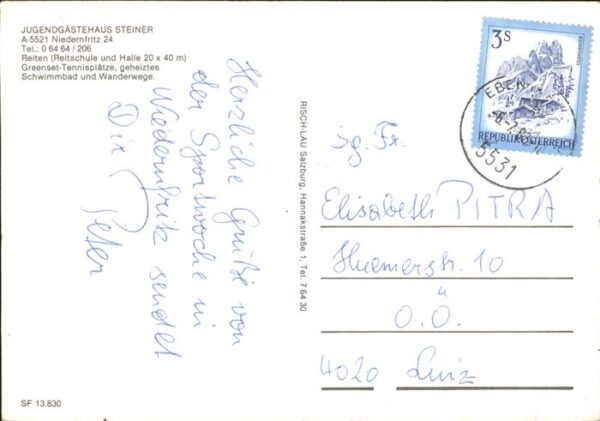 JUGENDGÄSTEHAUS STEINER
A-5521 Niedernfritz 24
Tel.: 0 64 64 / 206
Reiten (Reitschule und Halle 20 x 40 m)
Greenset-Tennisplätze, geheiztes
Schwimmbad und Wanderwege.
Herzliche Grüße von
der Sportwoche in
Niedernfritz sendet
Dir Peter
SF 13.830
RISCH-LAU Salzburg, Hannakstraße 1, Tel. 7 64 30
3S
REPUBLIK ÖSTERREICH
5531
Sg. Fr.
Elisabeth PITRA
Huemerstr. 10
O.Ö.
4020 Linz